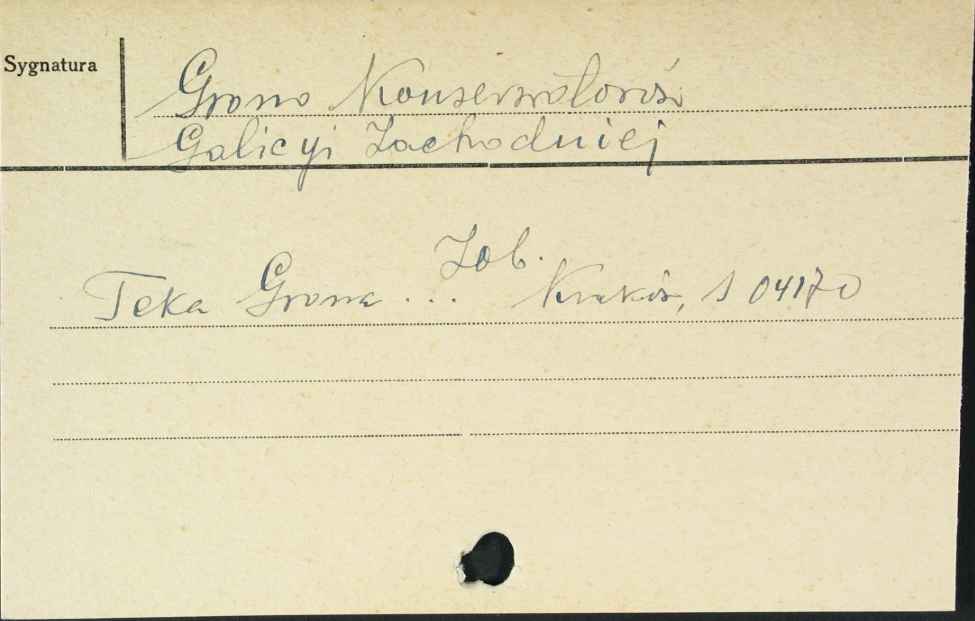 Sygnatura
Grono Konserwatorów
Galicyi Zachodniej
Zob.
Teka Grona ... Kraków, S 04170